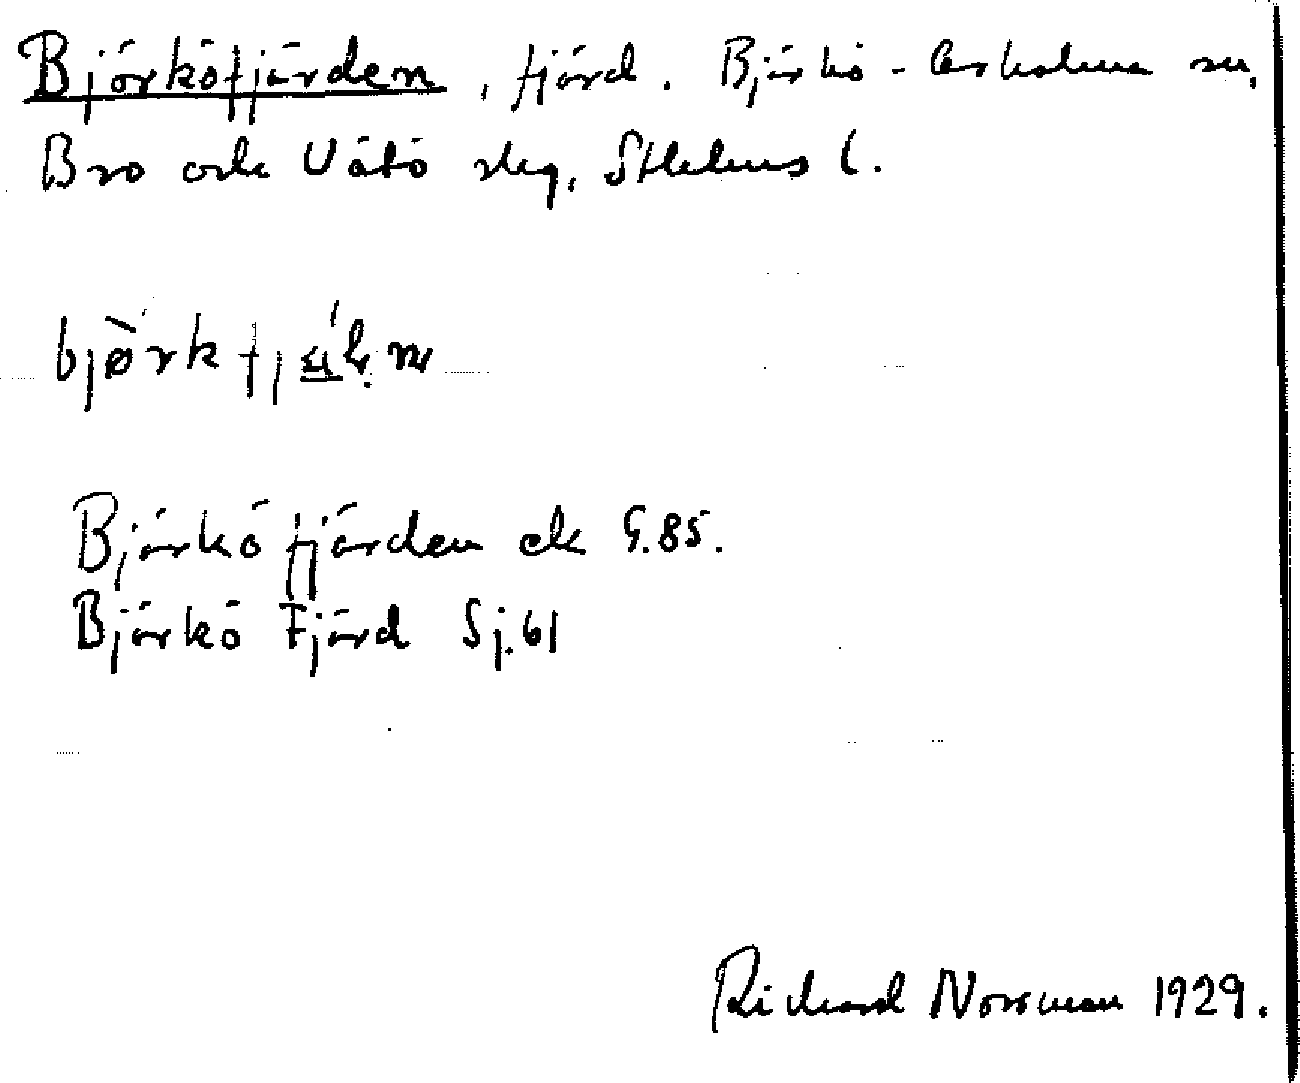 Björköfjärden, fjärd. Björkö-Arholma sn,
Bro och Vätö skg, Sthlms l.
Björkö fjärden ek G.85.
Björkö Fjärd Sj.61
Richard Norrman 1929.